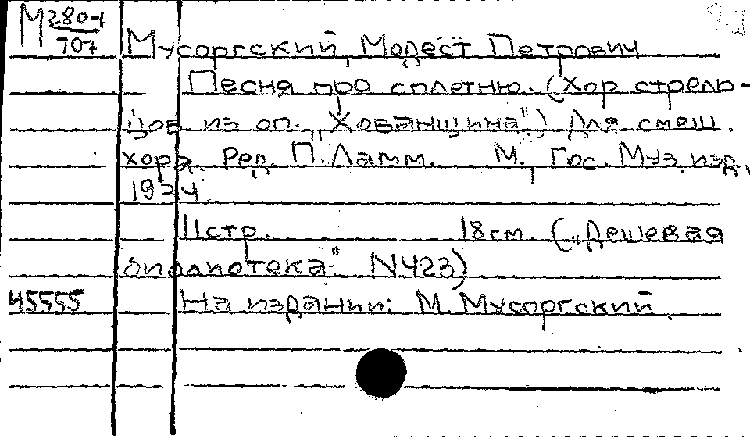 М 280-1
707
Мусоргский, Модест Петрович
Песня про сплетню. (Хор стрель-
цов из оп. „Хованщина") Для смеш.
хора. Ред. П. Ламм. М., Гос. Муз. изд.,
11 стр. 18 см. („Дешевая
библиотека" N423)
45555 На издании: М. Мусоргский.